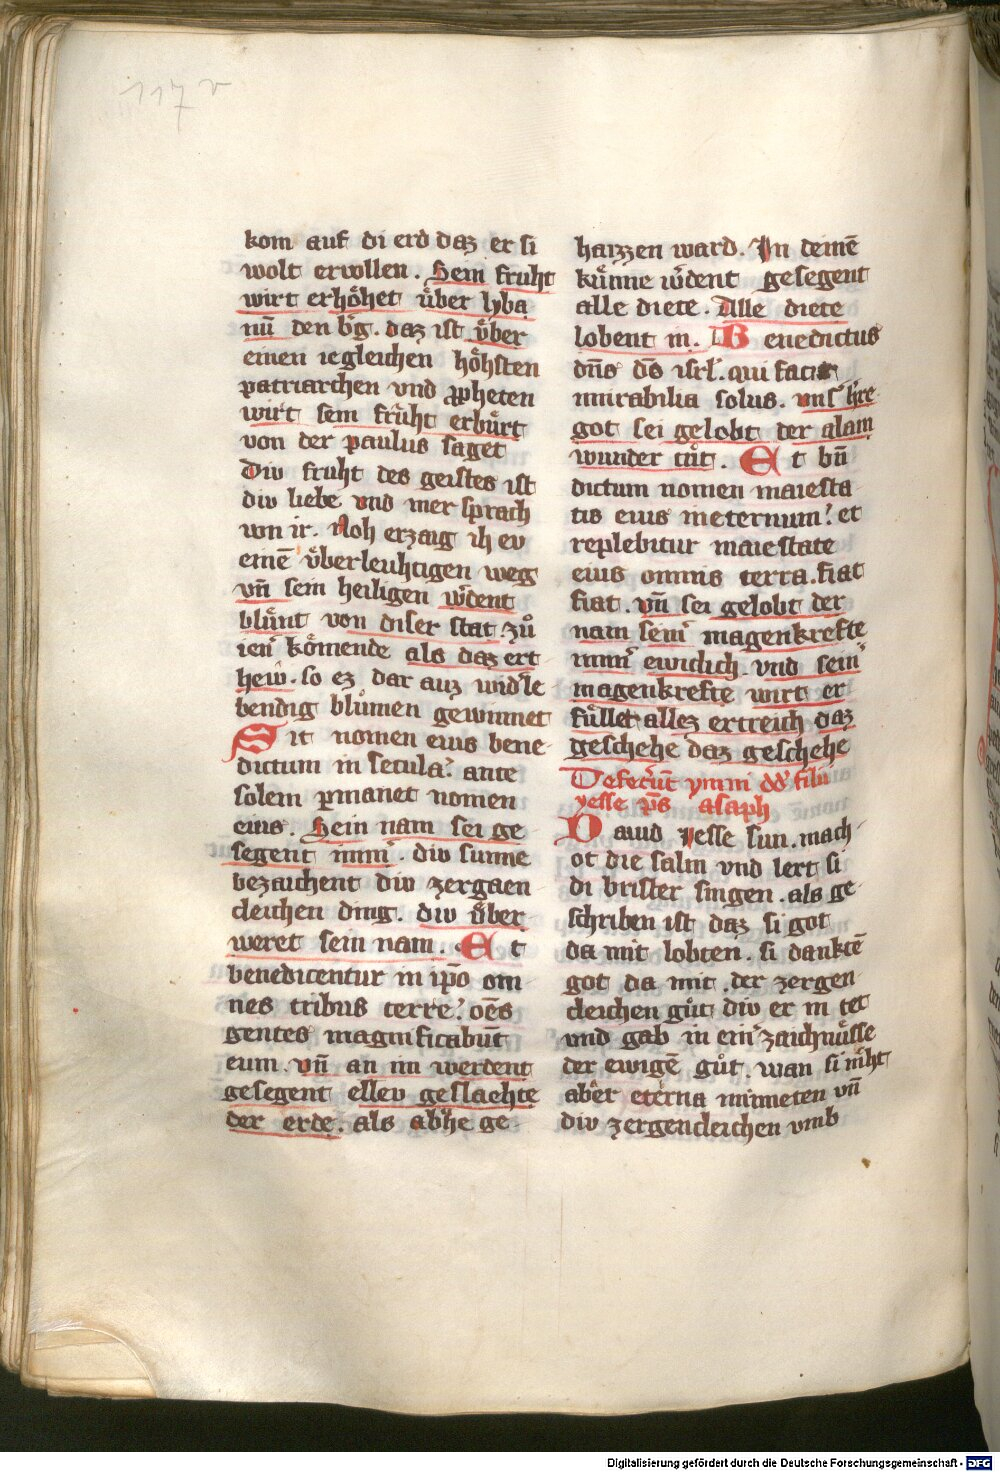 117 v
kom auf di erd daz er si
wolt ervollen. Sein fruht
wirt erhoͤhet uͤber lyba
nū den b̾g. daz ist vͤber
einen iegleichen hoͤhsten
patriarchen vnd ꝓpheten
wirt sein fruͤht erbuͤrt
von der paulus saget
Div fruht des geistes ist
div liebe vnd mer sprach
von ir. Noh erzaig ih ev
einē vͤberleuhtigen weg
vn̄ sein heiligen w̾dent
bluͤnt von diser stat. zuͦ
ien̾ koͤmende als daz ert
heiv. so ez dar auz wid̾le
bendig bluͦmen gewinnet
Sit nomen eius bene
dictum in secula? ante
solem ꝑmanet nomen
eius. Sein nam sei ge
segent imm̾. div sunne
bezaichent div zergaen
cleichen ding. div vͤber
weret sein nam. Et
benedicentur in ip̄o om
nes tribus terre? oēs
gentes magnificabūt
eum. vn̄ an im werdent
gesegent ellev geslaehte
der erde. als ab̾he ge
haizzen ward. In deinē
kuͤnne w̾dent gesegent
alle diete. Alle diete
lobent in. Benedictus
dn̄s dꝰs isrl̾. qui facit
mirabilia solus. vns̾ h̾re
got sei gelobt der alain
wunder tuͦt. Et bn̄
dictum nomen maiesta
tis eius ineternum? et
replebitur maiestate
eius omnis terra. fiat
fiat. vn̄ sei gelobt der
nam sein̾ magenkrefte
imm̾ ewiclich. vnd sein̾
magenkrefte wirt er
fuͤllet allez ertreich daz
geschehe daz geschehe
Defecer̄ūt ymni dd̾ filii
yesse ps̄ asaph
Dauid Yesse sun. mach
ot die salm vnd lert si
di brister singen. als ge
schriben ist daz si got
da mit lobten. si danktē
got da mit. der zergen
cleichen guͦt div er in tet
vnd gab in ein̾ zaichnuͤsse
der ewigē guͦt. wan si niht
aber eterna minneten vn̄
div zergencleichen vmb
Digitalisierung gefördert durch die Deutsche Forschungsgemeinschaft - DFG